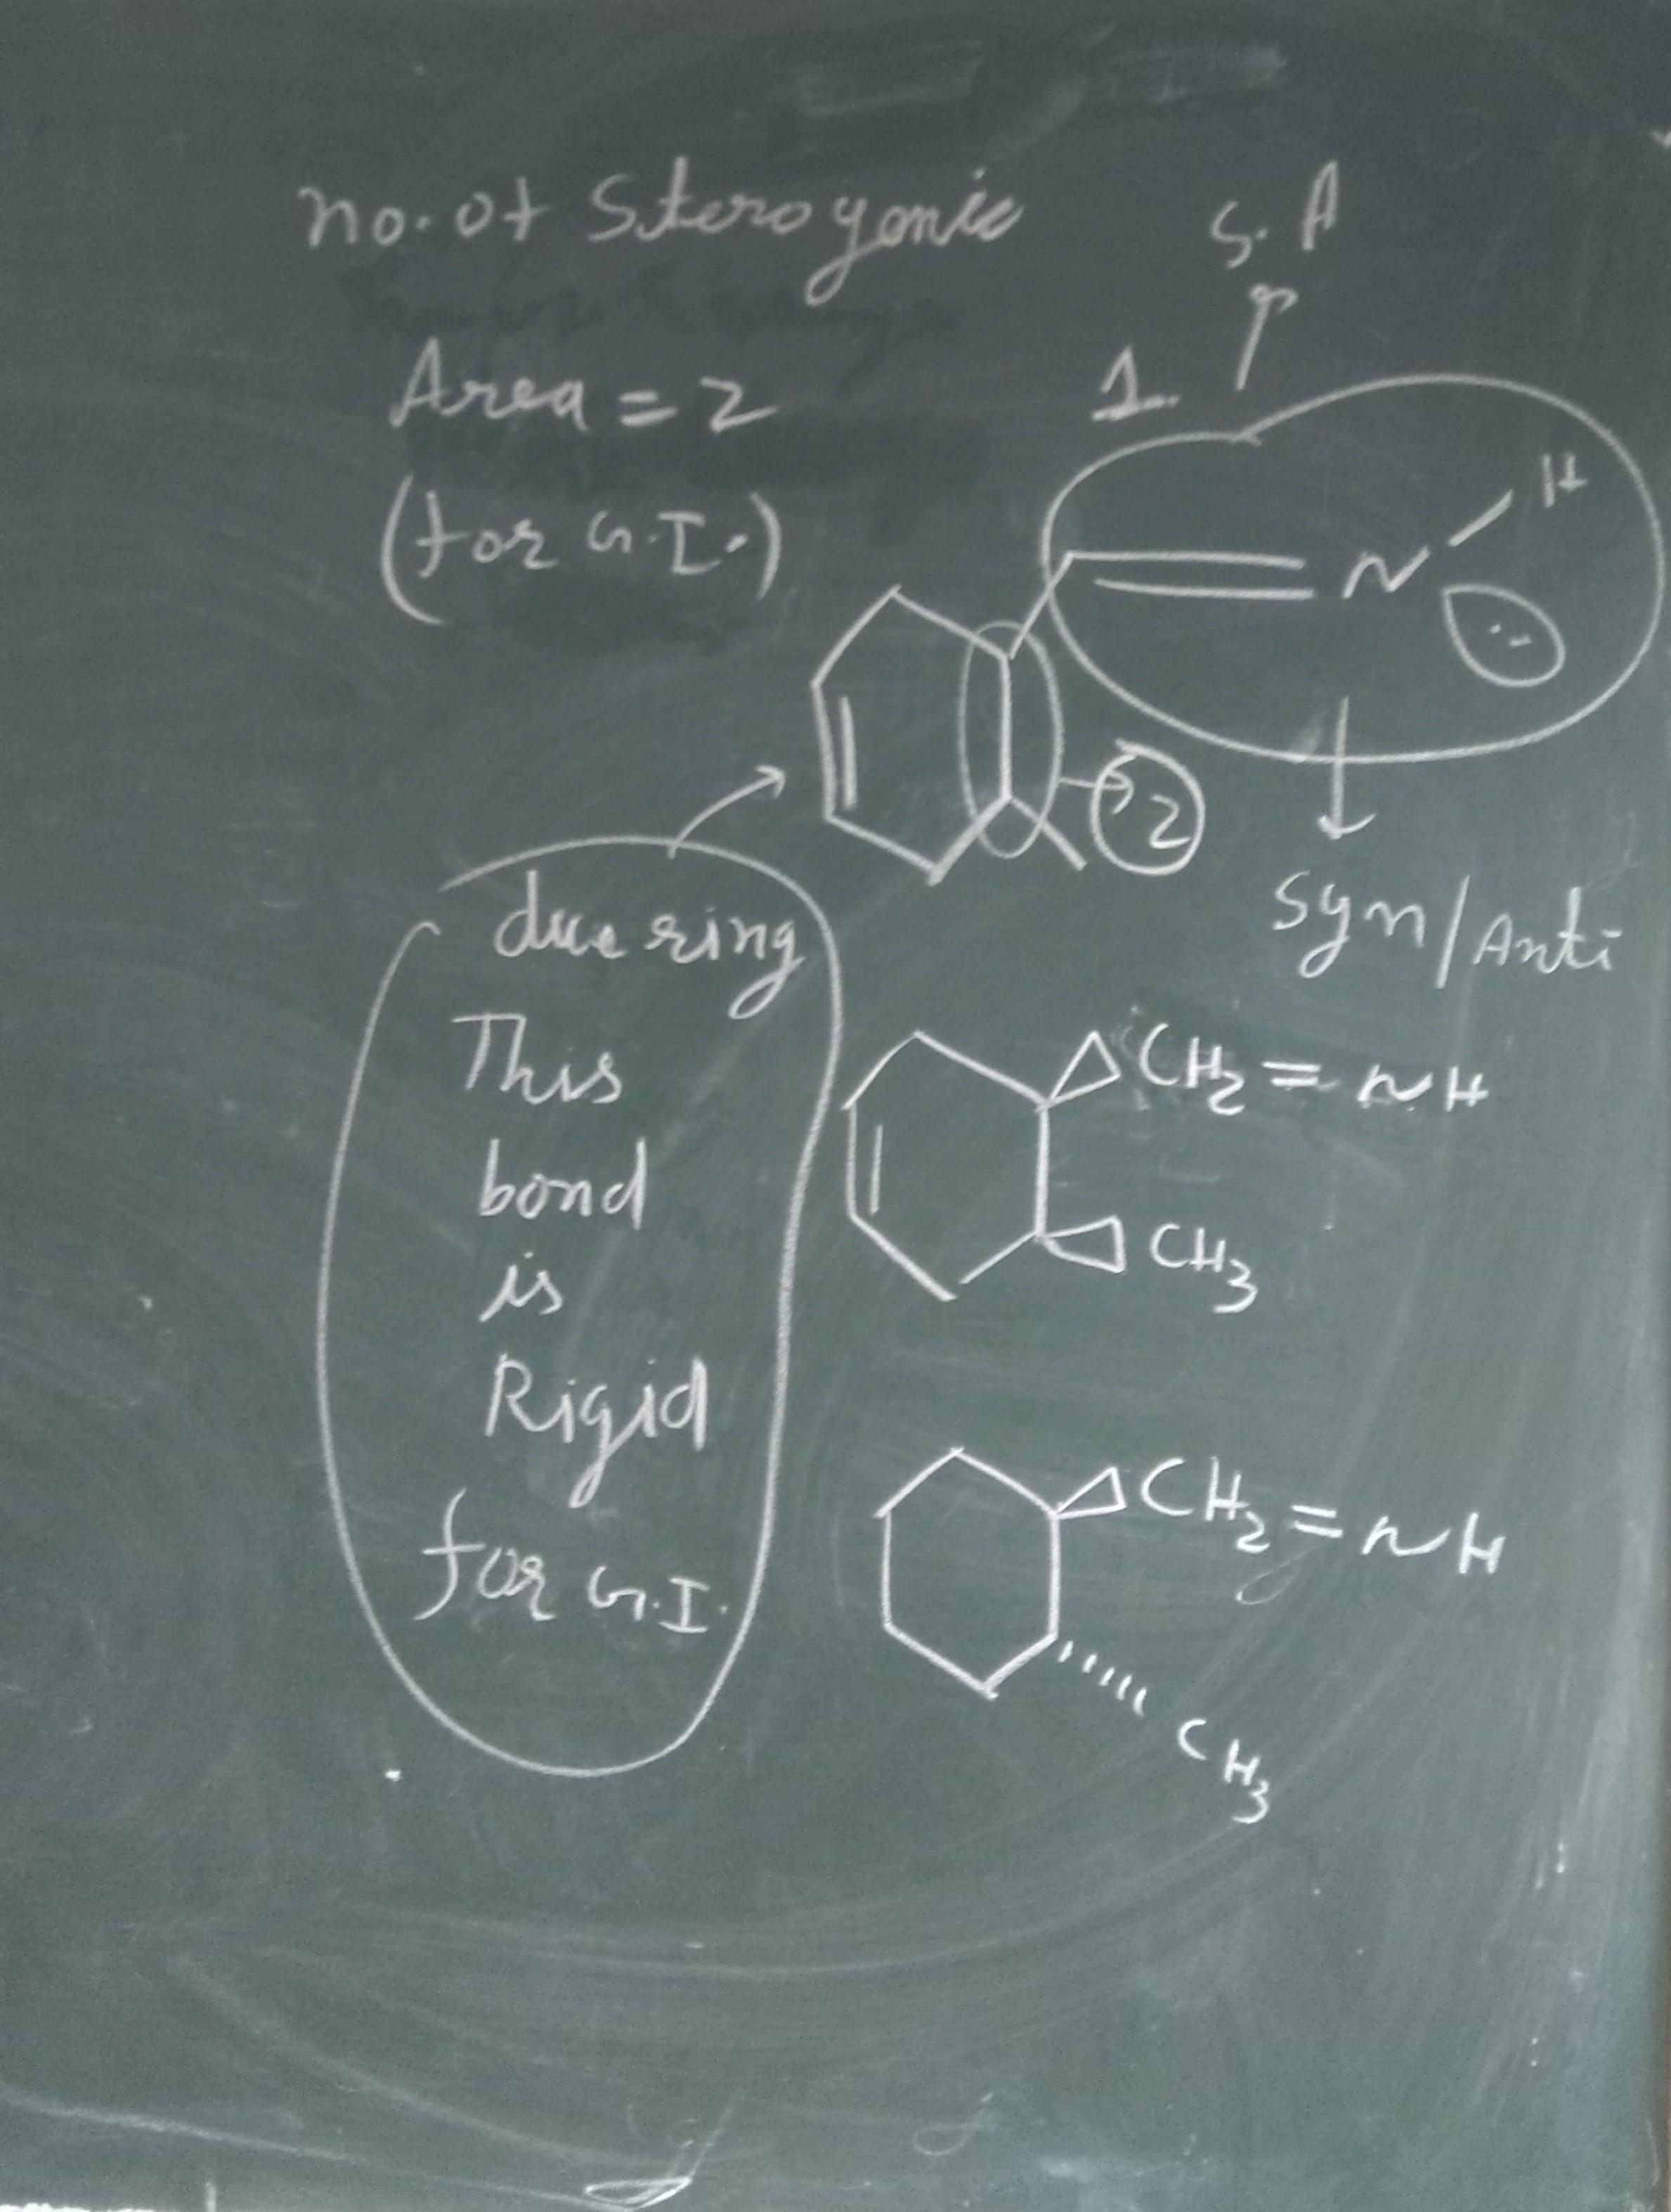 no. of Sterogonic
Area = 2
(for G.I.)
S.A
1.
N
H
2
Syn/Anti
due ring
This
bond
is
Rigid
for G.I.
CH2 = NH
CH3
CH2 = NH
CH3